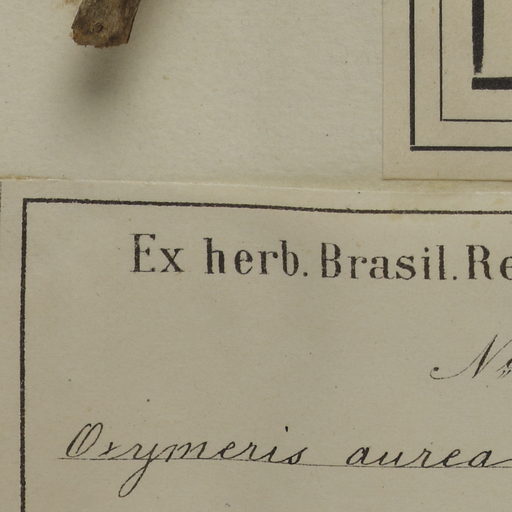 Ex herb. Brasil. Re
Oxymeris aurea